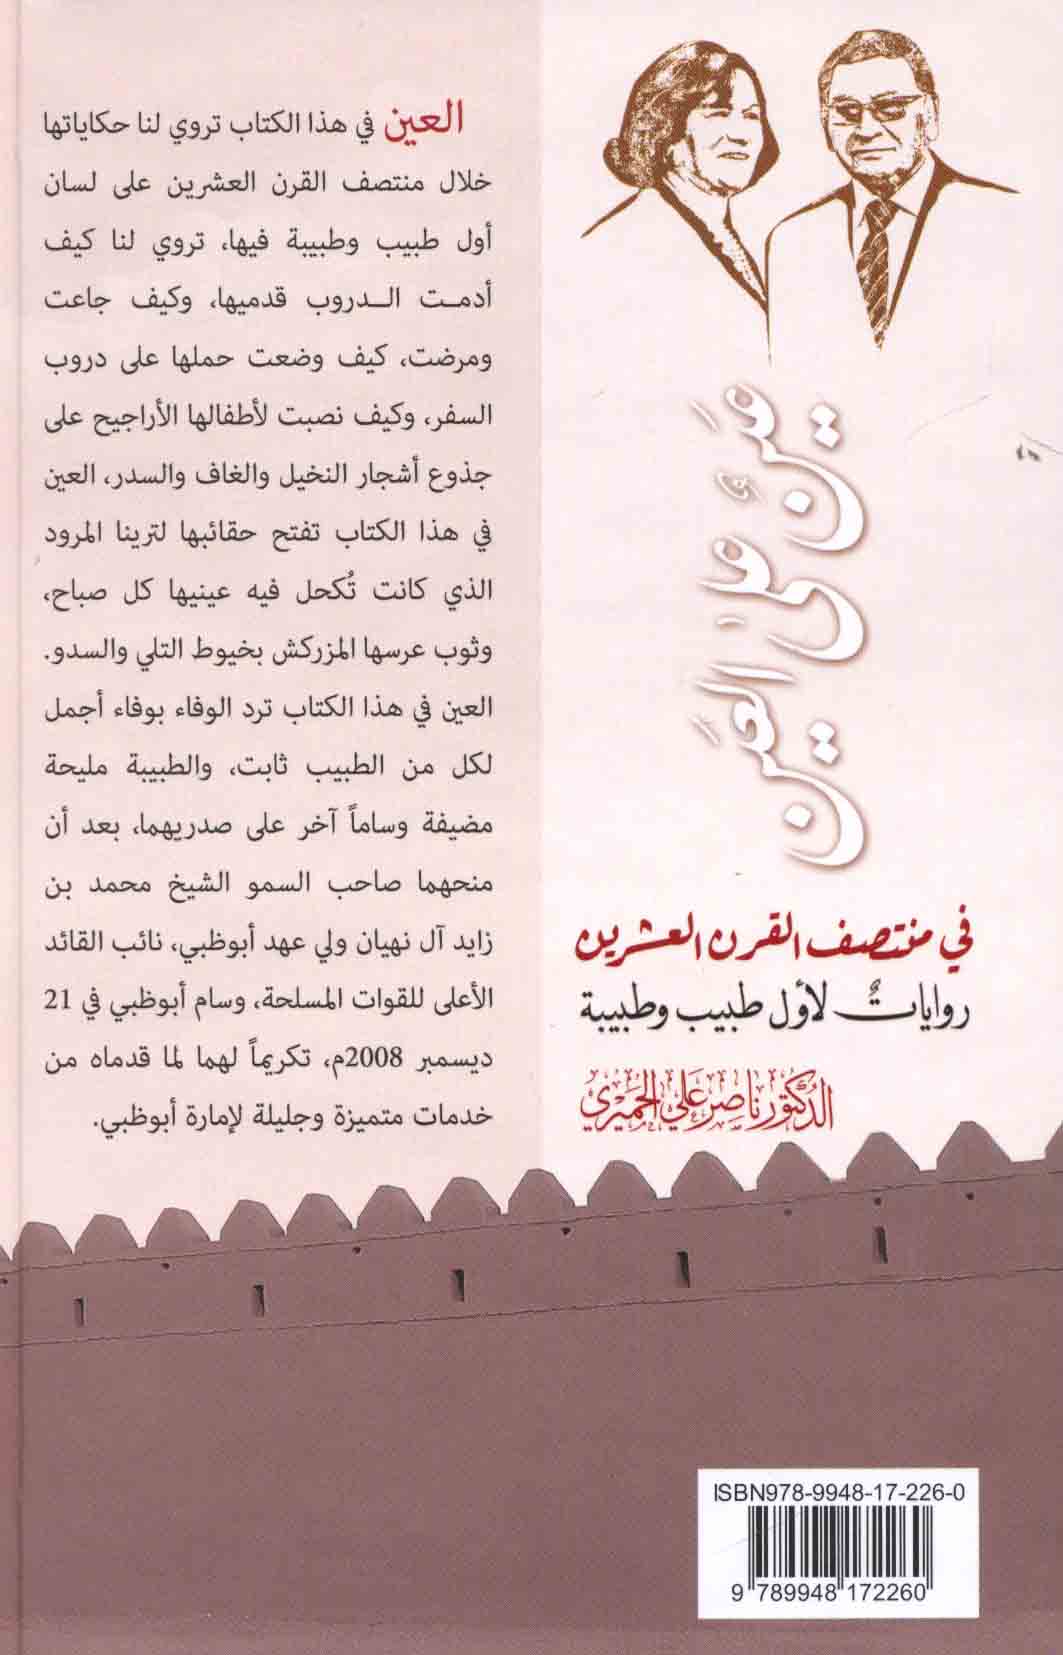 عين على العين
في منتصف القرن العشرين
روايات لأول طبيب وطبيبة
الدكتور ناصر علي الحميري
العين في هذا الكتاب تروي لنا حكاياتها
خلال منتصف القرن العشرين على لسان
أول طبيب وطبيبة فيها، تروي لنا كيف
أدمت الدروب قدميها، وكيف جاعت
ومرضت، كيف وضعت حملها على دروب
السفر، وكيف نصبت لأطفالها الأراجيح على
جذوع أشجار النخيل والغاف والسدر، العين
في هذا الكتاب تفتح حقائبها لترينا المرود
الذي كانت تُكحل فيه عينيها كل صباح،
وثوب عرسها المزركش بخيوط التلي والسدو.
العين في هذا الكتاب ترد الوفاء بوفاء أجمل
لكل من الطبيب ثابت، والطبيبة مليحة
مضيفة وساماً آخر على صدريهما، بعد أن
منحهما صاحب السمو الشيخ محمد بن
زايد آل نهيان ولي عهد أبوظبي، نائب القائد
الأعلى للقوات المسلحة، وسام أبوظبي في 21
ديسمبر 2008م، تكريماً لهما لما قدماه من
خدمات متميزة وجليلة لإمارة أبوظبي.
ISBN978-9948-17-226-0
9 789948 172260